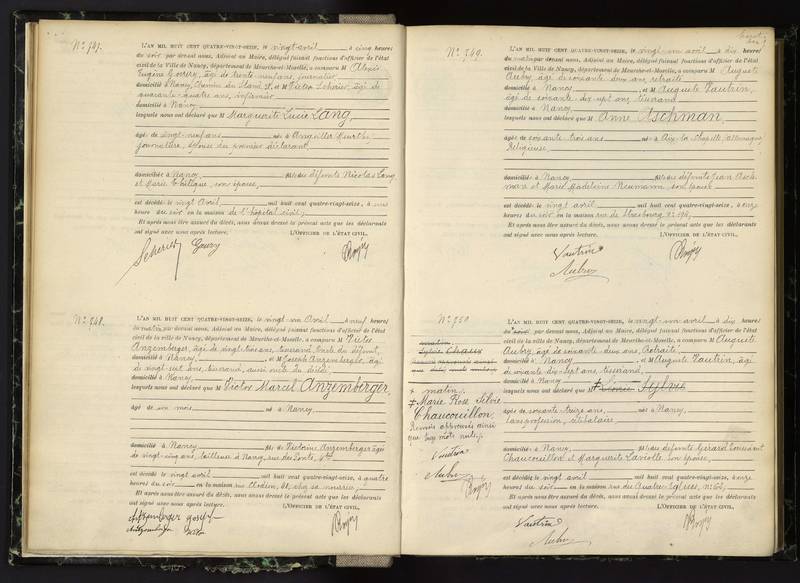 N° 747.
L'AN MIL HUIT CENT QUATRE-VINGT-SEIZE, le vingt avril à cinq heures
du soir par devant nous, Adjoint au Maire, délégué faisant fonctions d'officier de l'état
civil de la Ville de Nancy, département de Meurthe-et-Moselle, a comparu M Alexis
Eugène âgé de trente-neuf ans, journalier,
domicilié à Nancy, Chemin du et M Victor Scherier, âgé de
quarante-quatre ans, infirmier
domicilié à Nancy
lesquels nous ont déclaré que M Marguerite Lucie LANG,
âgée de vingt-neuf ans né à Angviller Meurthe,
journalière, épouse du premier déclarant,
domicilié à Nancy, fille de défunts Nicolas Lang
et Marie son épouse,
est décédé le vingt Avril mil huit cent quatre-vingt-seize, à une
heure du soir en la maison de l'hôpital civil,
Et après nous être assuré du décès, nous avons dressé le présent acte que les déclarants
ont signé avec nous après lecture. L'OFFICIER DE L'ÉTAT CIVIL,
N° 748.
L'AN MIL HUIT CENT QUATRE-VINGT-SEIZE, le vingt-un Avril à neuf heures
du matin par devant nous, Adjoint au Maire, délégué faisant fonctions d'officier de l'état
civil de la ville de Nancy, département de Meurthe-et-Moselle, a comparu M Victor
Anzemberger, âgé de vingt-trois ans, tisserand, oncle du défunt,
domicilié à Nancy, et M Joseph Anzemberger, âgé
de vingt-sept ans, tisserand, aussi oncle du décédé
domicilié à Nancy
lesquels nous ont déclaré que M Victor Marcel ANZEMBERGER,
âgé de six mois né à Nancy,
domicilié à Nancy fils de Victorine Anzemberger âgée
de vingt-cinq ans, tailleuse à Nancy, rue des Ponts,
est décédé le vingt avril mil huit cent quatre-vingt-seize, à quatre
heures du soir en la maison rue Clodion, chez sa nourrice,
Et après nous être assuré du décès, nous avons dressé le présent acte que les déclarants
ont signé avec nous après lecture. L'OFFICIER DE L'ÉTAT CIVIL,
Anzemberger Joseph
Anzemberger Victor
N° 749.
L'AN MIL HUIT CENT QUATRE-VINGT-SEIZE, le vingt-un avril à dix heures
du matin par devant nous, Adjoint au Maire, délégué faisant fonctions d'officier de l'état
civil de la Ville de Nancy, département de Meurthe-et-Moselle, a comparu M Auguste
Aubry, âgé de soixante deux ans, retraité
domicilié à Nancy et M Auguste Vautrin,
âgé de soixante-dix-sept ans, tisserand,
domicilié à Nancy
lesquels nous ont déclaré que M Anne ASCHMAN,
âgée de soixante-trois ans née à Aix-la-Chapelle, Allemagne,
Religieuse,
domicilié à Nancy fille de défunts Jean Asch-
man et Marie Madeleine Neumann, son épouse
est décédé le vingt avril mil huit cent quatre-vingt-seize, à onze
heures du soir en la maison rue de Strasbourg n° 194,
Et après nous être assuré du décès, nous avons dressé le présent acte que les déclarants
ont signé avec nous après lecture. L'OFFICIER DE L'ÉTAT CIVIL,
Vautrin
Aubry
N° 750
matin.
Marie Rose Silvie
Chaucouillon,
Renvois approuvés ainsi
que mots nuls.
Vautrin
Aubry
L'AN MIL HUIT CENT QUATRE-VINGT-SEIZE, le vingt-un avril à dix heures
du soir par devant nous, Adjoint au Maire, délégué faisant fonctions d'officier de l'état
civil de la Ville de Nancy, département de Meurthe-et-Moselle, a comparu M Auguste
Aubry, âgé de soixante deux ans, Retraité,
domicilié à Nancy, et M Auguste Vautrin, âgé
de soixante-dix-sept ans, tisserand,
domicilié à Nancy
lesquels nous ont déclaré que M
âgée de soixante-treize ans, née à Nancy,
sans profession, célibataire
domicilié à Nancy, fille de défunts Gérard Toussaint
Chaucouillon et Marguerite Laviolle son épouse,
est décédé le vingt avril mil huit cent quatre-vingt-seize, à onze
heures du soir en la maison rue des Quatre-Eglises,
Et après nous être assuré du décès, nous avons dressé le présent acte que les déclarants
ont signé avec nous après lecture. L'OFFICIER DE L'ÉTAT CIVIL,
Vautrin
Aubry